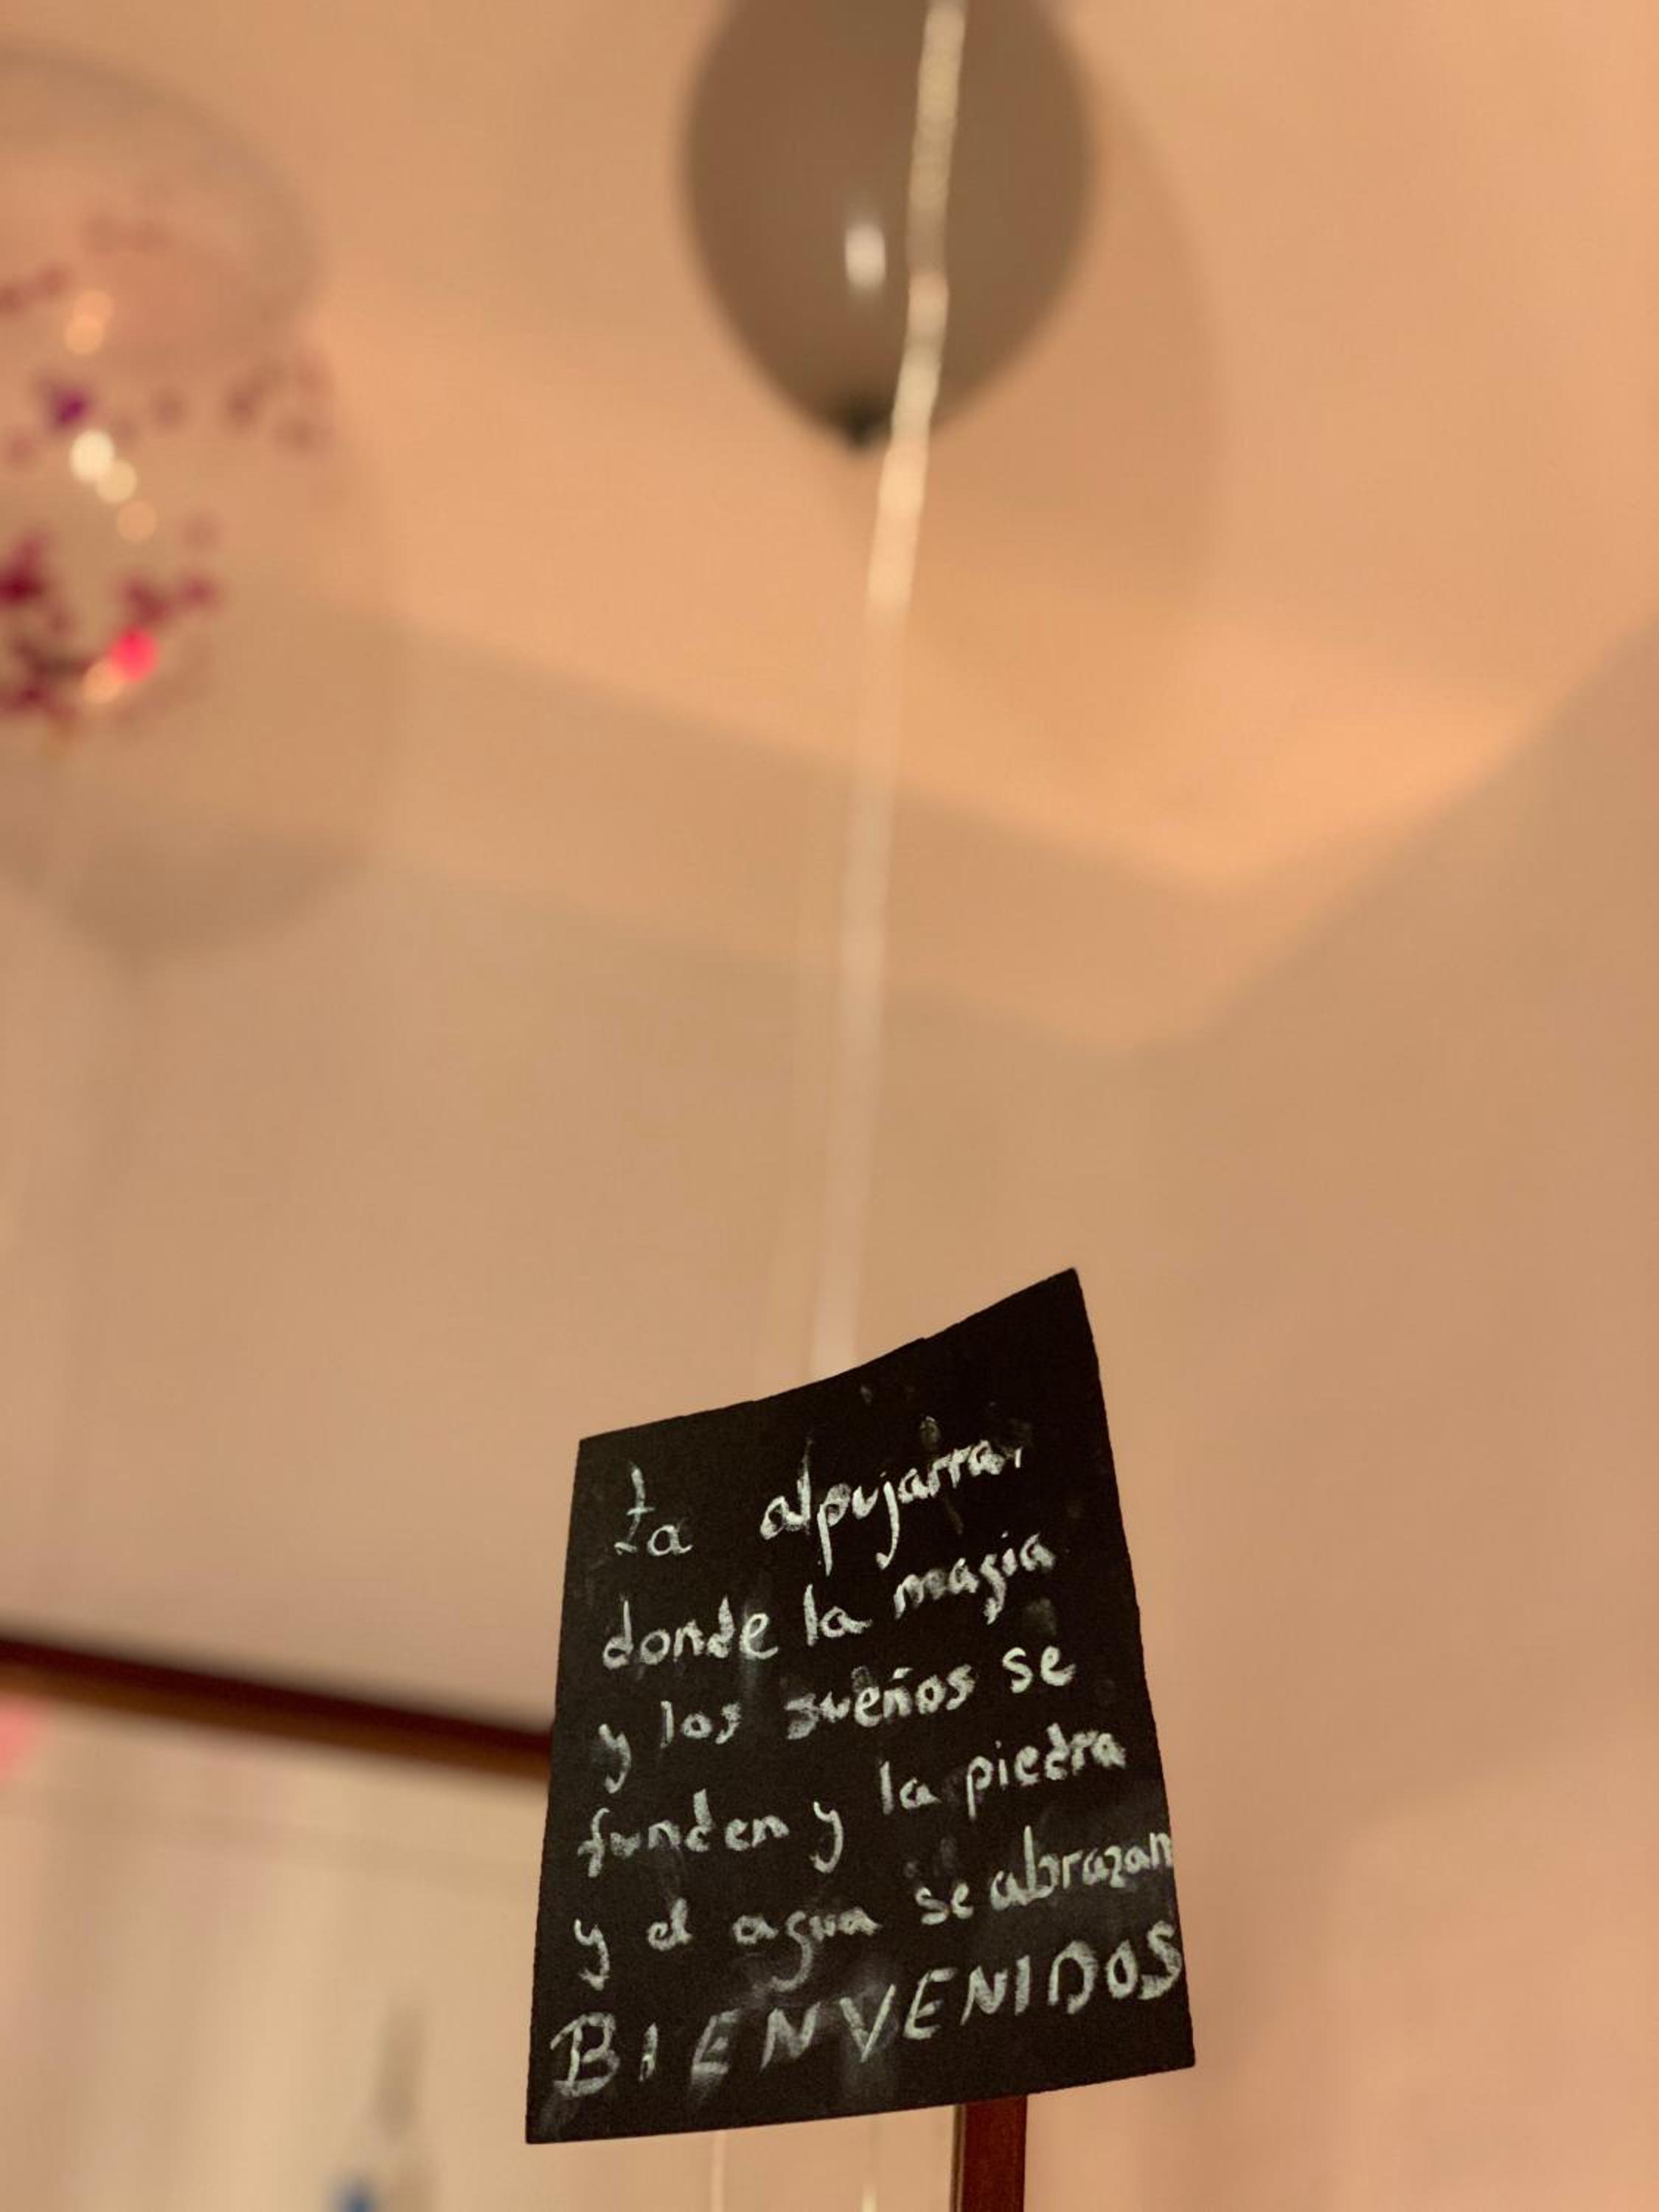 La alpujarra,
donde la magia
y los sueños se
funden y la piedra
y el agua se abrazan
BIENVENIDOS